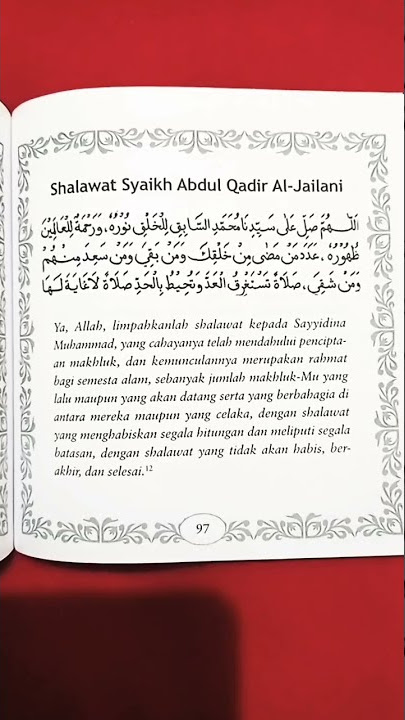 Shalawat Syaikh Abdul Qadir Al-Jailani
اَللّٰهُمَّ صَلِّ عَلَى سَيِّدِنَا مُحَمَّدٍ السَّابِقِ لِلْخَلْقِ نُوْرُهُ، وَرَحْمَةٌ لِلْعَالَمِيْنَ
ظُهُوْرُهُ، عَدَدَ مَنْ مَضَى مِنْ خَلْقِكَ وَمَنْ بَقِيَ وَمَنْ سَعِدَ مِنْهُمْ
وَمَنْ شَقِيَ، صَلَاةً تَسْتَغْرِقُ الْعَدَّ وَتُحِيْطُ بِالْحَدِّ صَلَاةً لَا غَايَةَ لَهَا
Ya, Allah, limpahkanlah shalawat kepada Sayyidina
Muhammad, yang cahayanya telah mendahului pencipta-
an makhluk, dan kemunculannya merupakan rahmat
bagi semesta alam, sebanyak jumlah makhluk-Mu yang
lalu maupun yang akan datang serta yang berbahagia di
antara mereka maupun yang celaka, dengan shalawat
yang menghabiskan segala hitungan dan meliputi segala
batasan, dengan shalawat yang tidak akan habis, ber-
akhir, dan selesai.¹²
97